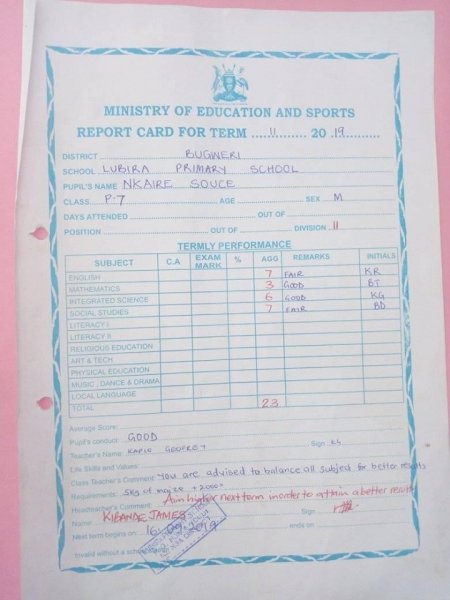 MINISTRY OF EDUCATION AND SPORTS
REPORT CARD FOR TERM ....11.... 2019..........
DISTRICT BUGWERI
SCHOOL LUBIRA PRIMARY SCHOOL
PUPIL'S NAME NKAIRE SOUCE
CLASS P.7 AGE SEX M
DAYS ATTENDED OUT OF
POSITION OUT OF DIVISION 11
TERMLY PERFORMANCE
SUBJECT C.A EXAM MARK % AGG REMARKS INITIALS
ENGLISH 7 FAIR KR
MATHEMATICS 3 GOOD BT
INTEGRATED SCIENCE 6 GOOD KG
SOCIAL STUDIES 7 FAIR BD
LITERACY I
LITERACY II
RELIGIOUS EDUCATION
ART & TECH
PHYSICAL EDUCATION
MUSIC, DANCE & DRAMA
LOCAL LANGUAGE
TOTAL 23
Average Score:
Pupil's conduct: GOOD
Teacher's Name: GODFREY Sign KG
Life Skills and Values:
Class Teacher's Comment: You are advised to balance all subject for better results
Requirements: 5kg of maize + 2000/=
Headteacher's Comment: Aim higher next term in order to attain a better result
Name: KIBANDE JAMES Sign
Next term begins on: 16 2019 ends on
Invalid without a school